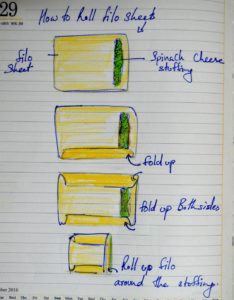 29
How to Roll filo sheets
filo
Sheet
Spinach Cheese
stuffing
fold up
fold up Both sides
Roll up filo
around the stuffing.